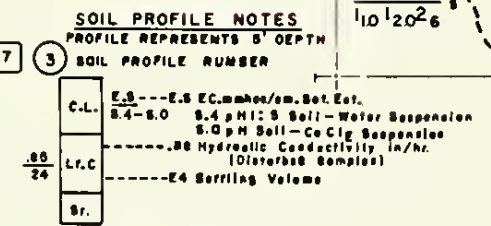 SOIL PROFILE NOTES
PROFILE REPRESENTS 5' DEPTH
7 3 SOIL PROFILE RUMBER
C.L. E.S ---E.S EC.mmhos/cm.Sat.Ext.
8.4-8.0 8.4 pH 1:5 Soil-Water Suspension
8.0 pH Soil-CaCl2 Suspension
.86 Lr.C ---.86 Hydraulic Conductivity in/hr.
24 (Disturbed Samples)
---E4 Settling Volume
Sr.
110 120 26